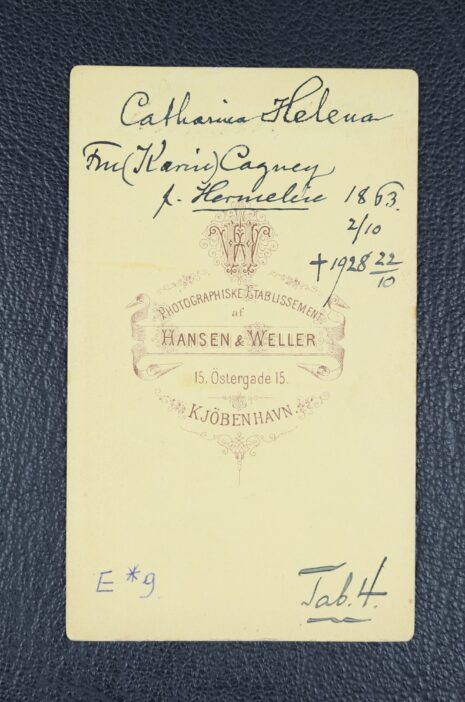 Catharina Helena
Fru (Karin) Cagney
f. Hermelin 1863.
2/10
† 1928 22/10
HW
PHOTOGRAPHISKE ETABLISSEMENT
af
HANSEN & WELLER
15. Östergade 15.
KJÖBENHAVN.
E *9
Tab. 4.